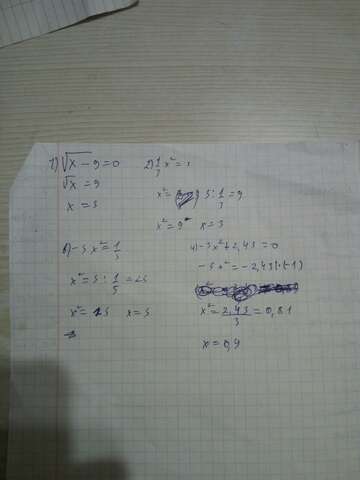 1) √x - 9 = 0
√x = 9
x = 3
2) 1/3 x² =
x² = 3 : 1/3 = 9
x² = 9 x = 3
- 5 x² = 1/5
x² = 5 : 1/5 = 25
x² = 25 x = 5
4) - 3x² + 2,43 = 0
- 3x² = - 2,43 | · (-1)
x² = 2,43/3 = 0,81
x = 0,9